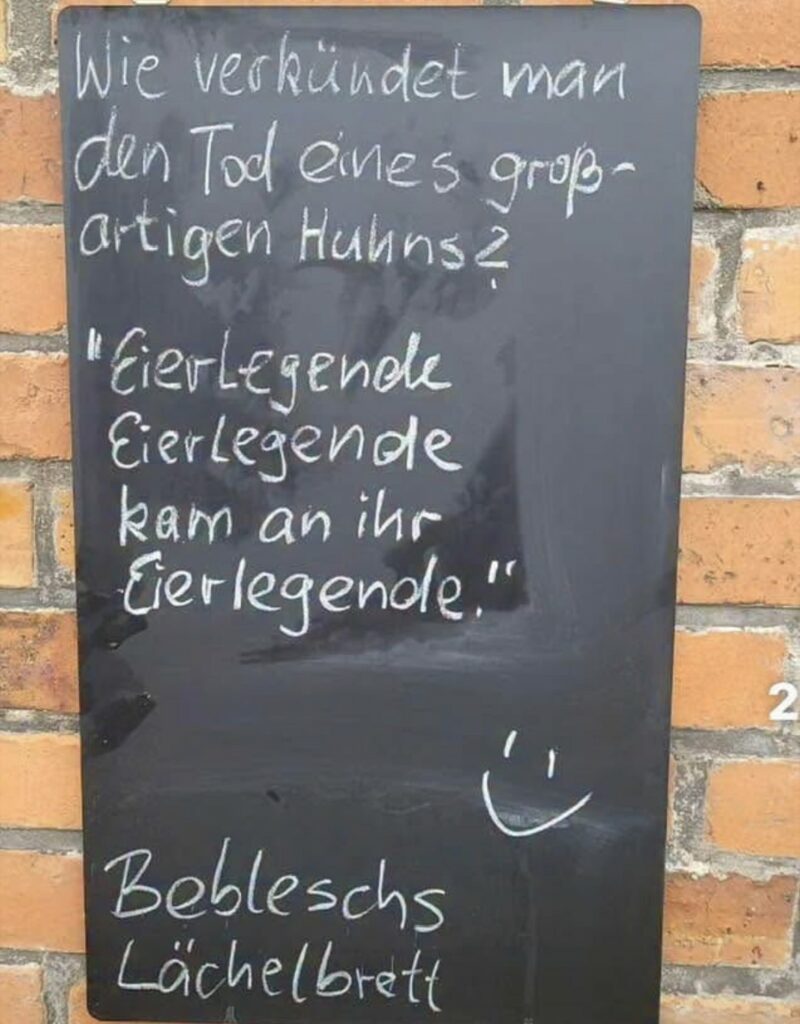 Wie verkündet man
den Tod eines groß-
artigen Huhns?
"Eierlegende
Eierlegende
kam an ihr
Eierlegende."
Bebleschs
Lächelbrett
2